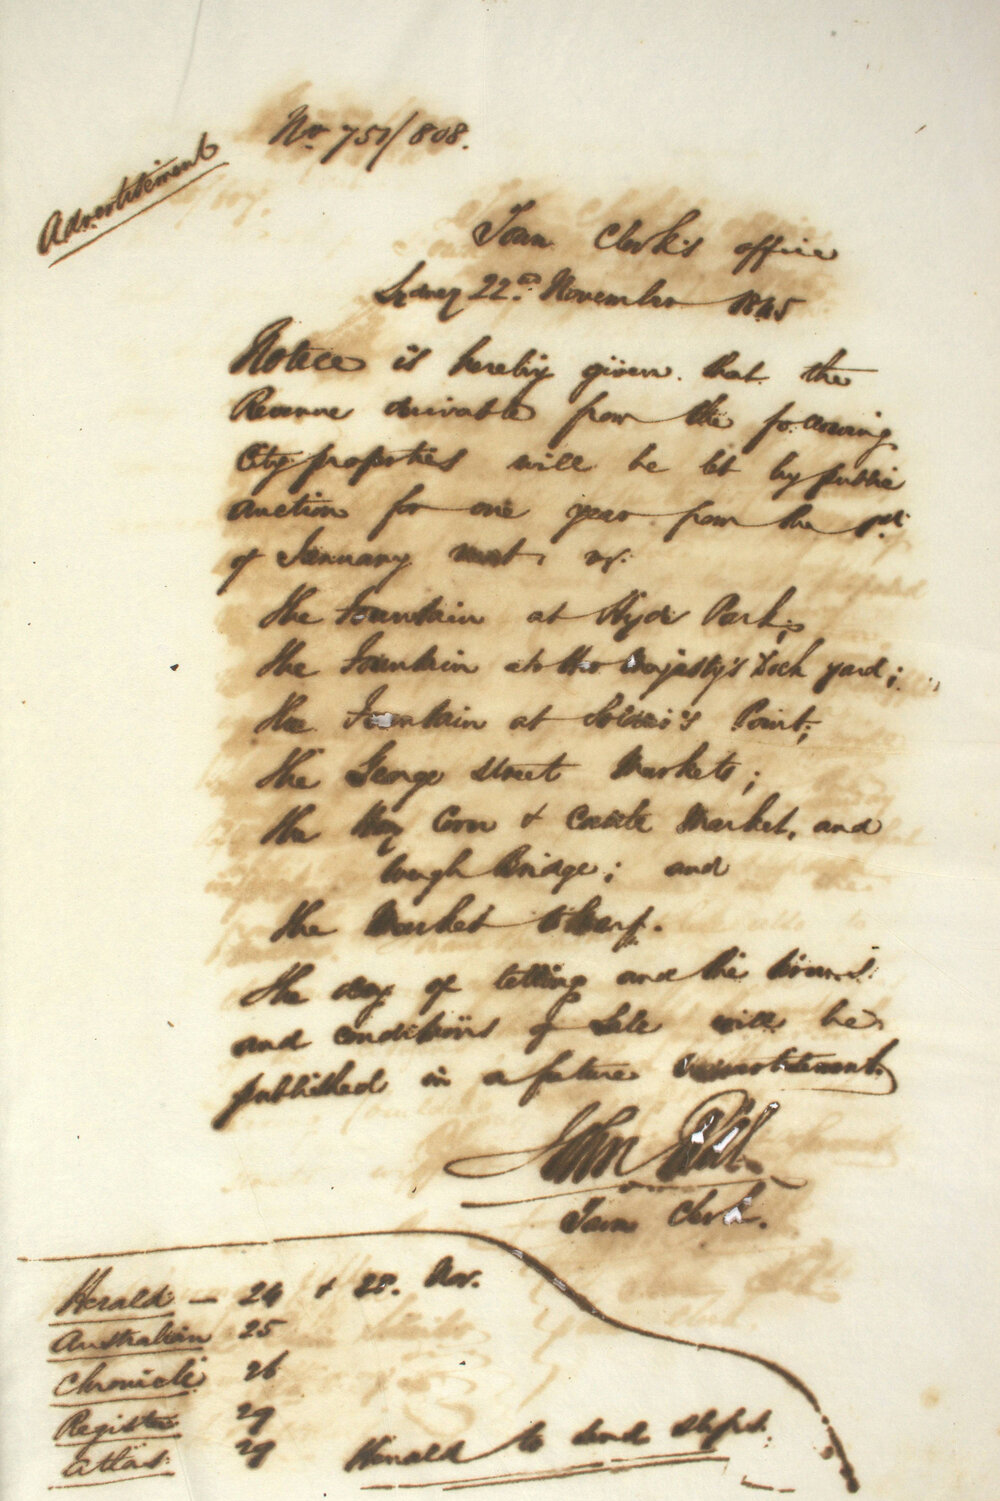 No 751/808.
Advertisement
Town Clerk's office
Sydney 22nd November 1845
Notice is hereby given that the
Revenue derivable from the following
City properties will be let by public
auction for one year from the 1st
of January next, vz.
The Fountain at Hyde Park;
The Fountain at Her Majesty's Dock yard;
The Fountain at Soldier's Point;
The George Street Markets;
The Hay Corn & Cattle Market, and
Weigh Bridge; and
The Market Wharf.
The day of letting and the terms
and conditions of Sale will be
published in a future advertisement.
John
Town Clerk.
Herald — 24 & 28. Nov.
Australian 25
Chronicle 26
Register 29
Atlas 29
Herald to send